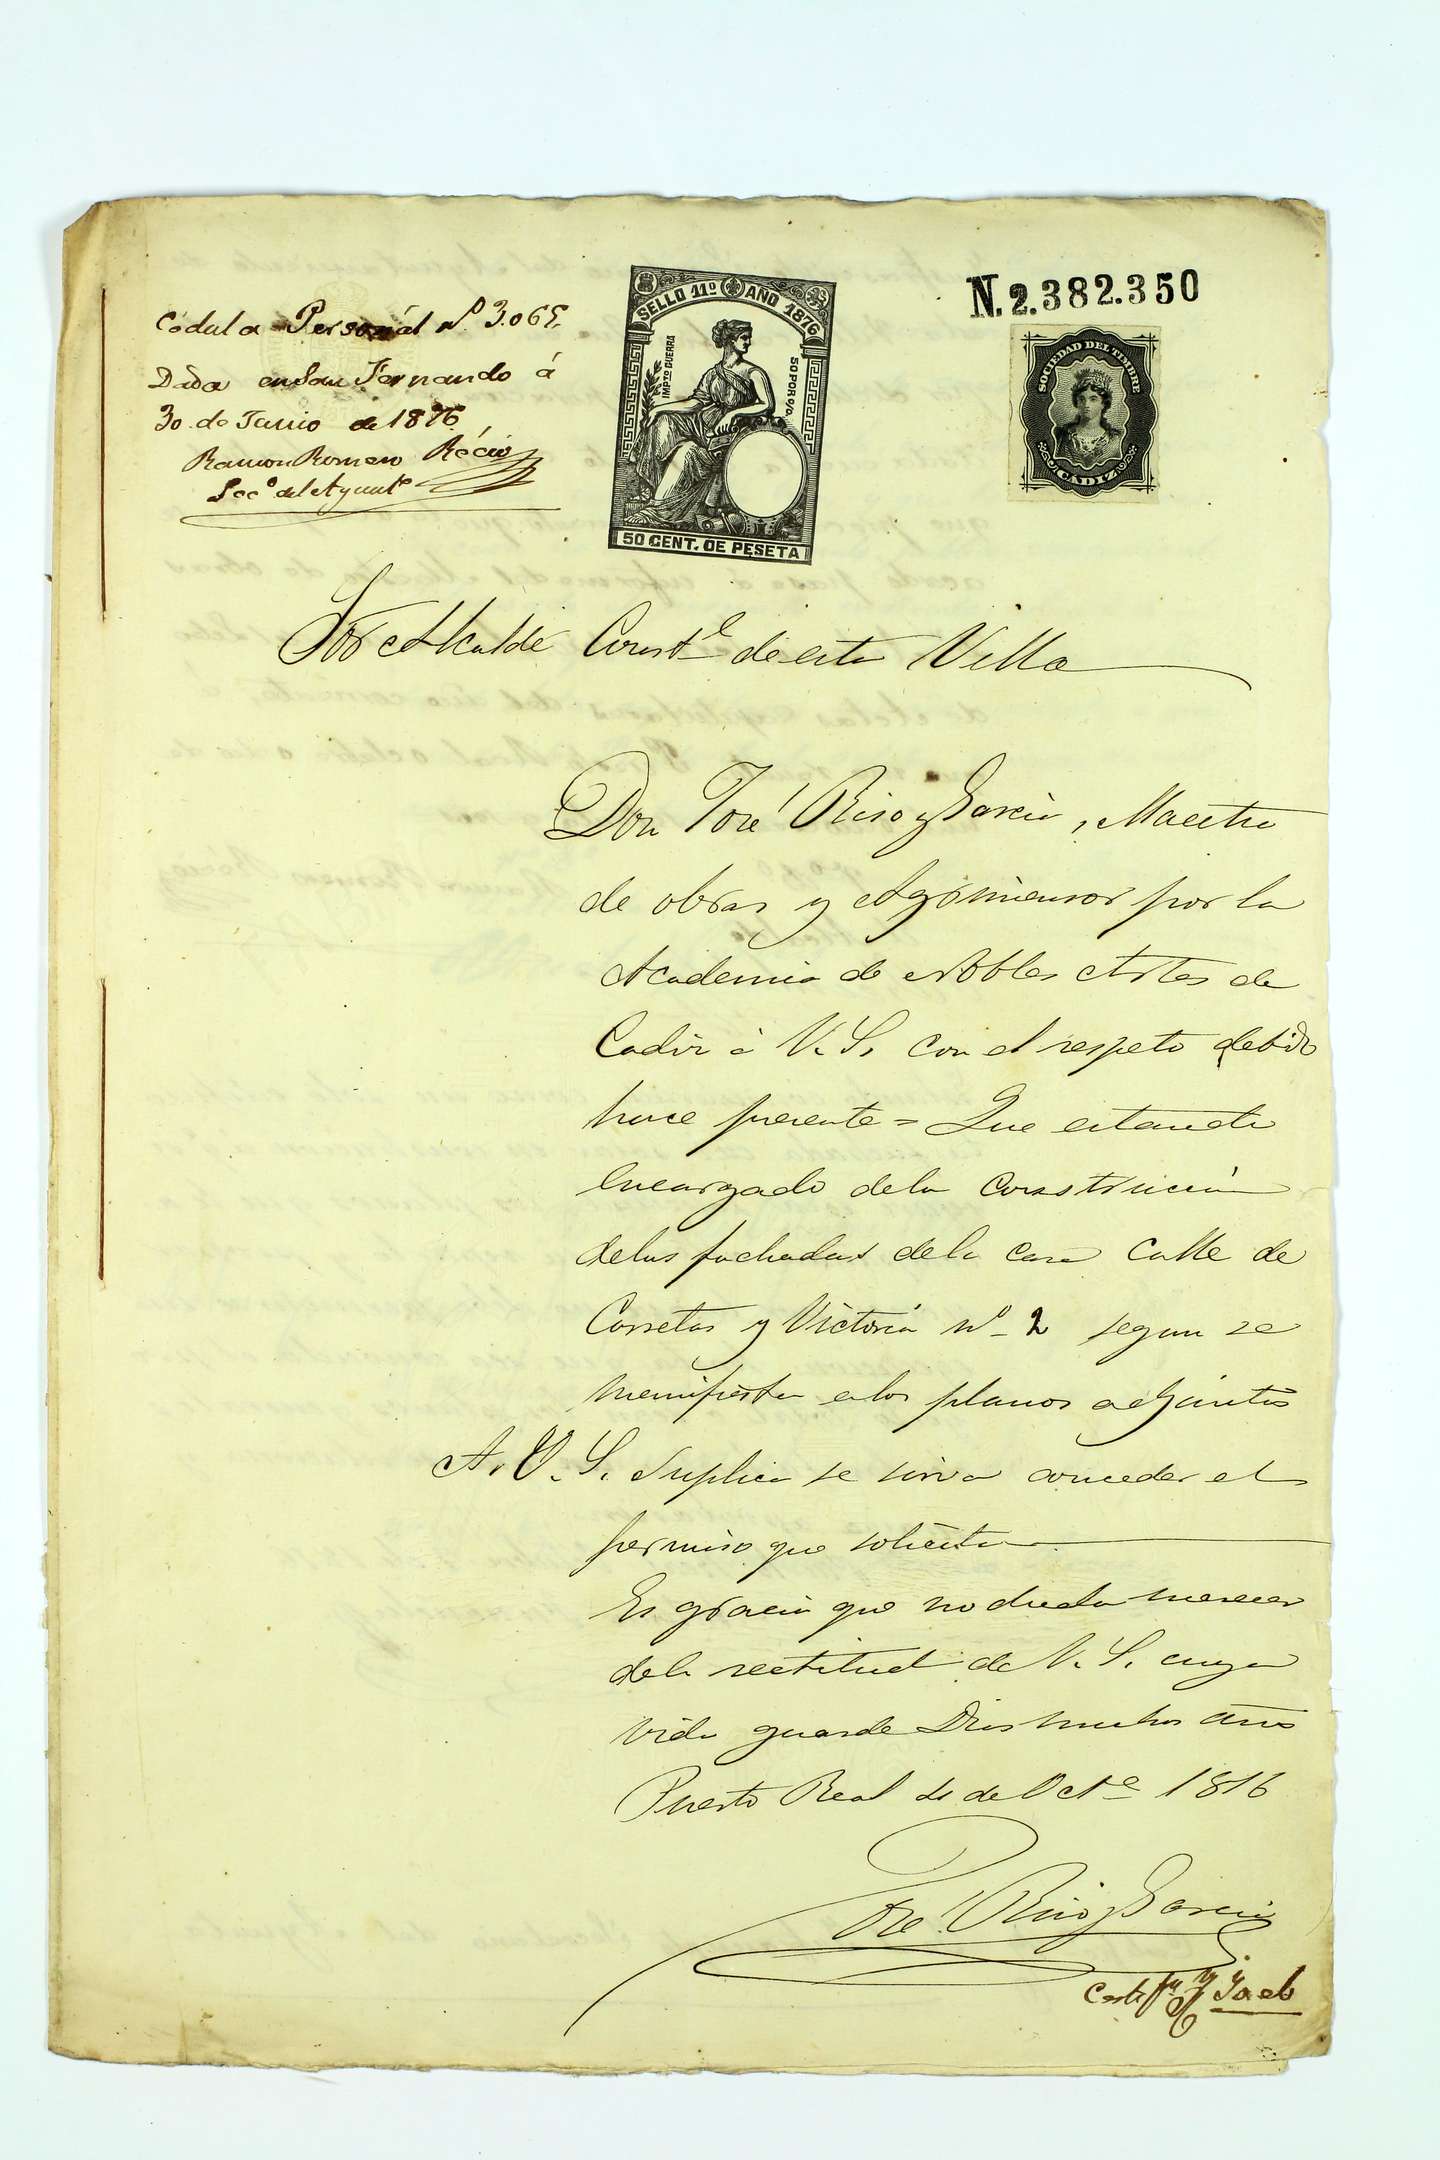 Cédula Personal nº 3.065.
Dada en San Fernando á
30 de Junio de 1876
Ramon Romero Recio
Secº del Ayuntº
SELLO 11º AÑO 1876
IMPTO GUERRA
50 POR 0/0
50 CENT. DE PESETA
N. 2.382.350
SOCIEDAD DEL TIMBRE
CADIZ
Sor Alcalde Constl de esta Villa
Don José Riso y Garcia, Maestro
de obras y Agrimensor por la
Academia de Nobles Artes de
Cadiz á V. S. con el respeto debido
hace presente = Que estando
encargado dela Construcción
delas fachadas dela casa Calle de
Carretas y Victoria nº 2 segun se
manifiesta en los planos adjuntos
A. V. S. Suplica se sirva conceder el
permiso que solicita
Es gracia que no duda merecer
dela rectitud de V. S. cuya
vida guarde Dios muchos años
Puerto Real 4 de Octe 1876
José Riso y Garcia